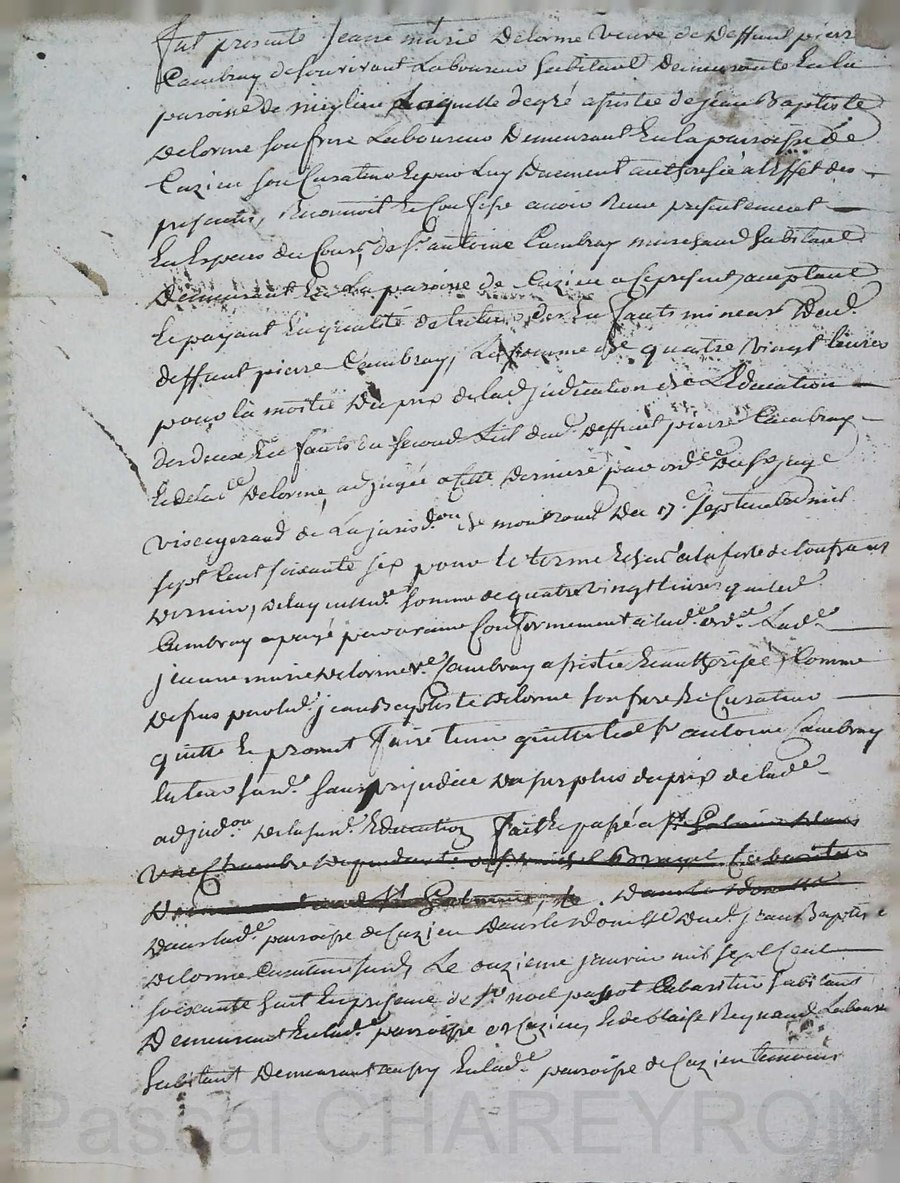 fut presente Jeanne marie Delorme veuve de Deffunt pierre
Cambray de Son vivant Laboureur habitant Demeurante En la
paroisse de laquelle de gré assistée de jean Baptiste
Delorme Son frere Laboureur Demeurant En la paroisse de
Cuzieu Son Curateur Et par Luy Duement authorisée a l'Effet des
presentes, Reconnoit Et Confesse avoir Reçue presentement
En Especes du Cours, de Sr antoine Cambray marchand habitant
Demeurant En La paroisse de Cuzieu a Ce present acceptant
Et payant En qualité de tuteur des Enfants mineurs Dud.
deffunt pierre Cambray, La Somme de quatre vingt Livres
pour la moitié Du prix de Ladjudication de L'Education
des deux Enfants du Second Lit dud. Deffunt pierre Cambray
Et de lad.e Delorme, adjugée a Cette Derniere par ord.ce Du Sr juge
visegerand de La jurisd.on de montrond Du 17.e Septembre mil
Sept Cent soixante Six pour le terme Echu a la feste de toussaint
Dernier, De laquelle Somme de quatre vingt Livres que led.
Cambray a payé par avance Conformement a lad.e ord.ce Lad.e
jeanne marie Delorme ve. Cambray assistée Et authorisée, Comme
Dessus par led. jean Baptiste Delorme Son frere Et Curateur
quitte Et promet faire tenir quitte led. Sr antoine Cambray
tuteur Susd. Sans prejudice Du Surplus du prix de lad.e
adjud.on De la Susd. Education fait Et passé a St Galmier Dans
une Chambre Dependante Cabaretier
Demeurant aud. St Galmier, Dans le Domicille
Dans lad.e paroisse de Cuzieu Dans le Domicille Dud. jean Baptiste
Delorme Curateur Susd. Le onzieme janvier mil Sept Cent
Soixante huit En presence de Sr noel Cabaretier habitant
Demeurant En lad.e paroisse de Cuzieu, Et de blaise Reynaud Laboureur
habitant Demeurant En lad.e paroisse de Cuzieu temoins
Pascal CHAREYRON